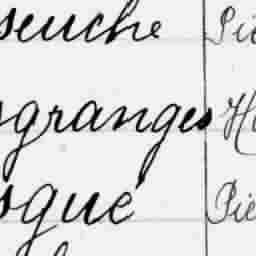 seuche Pie
sgranges Ho
sque Pie